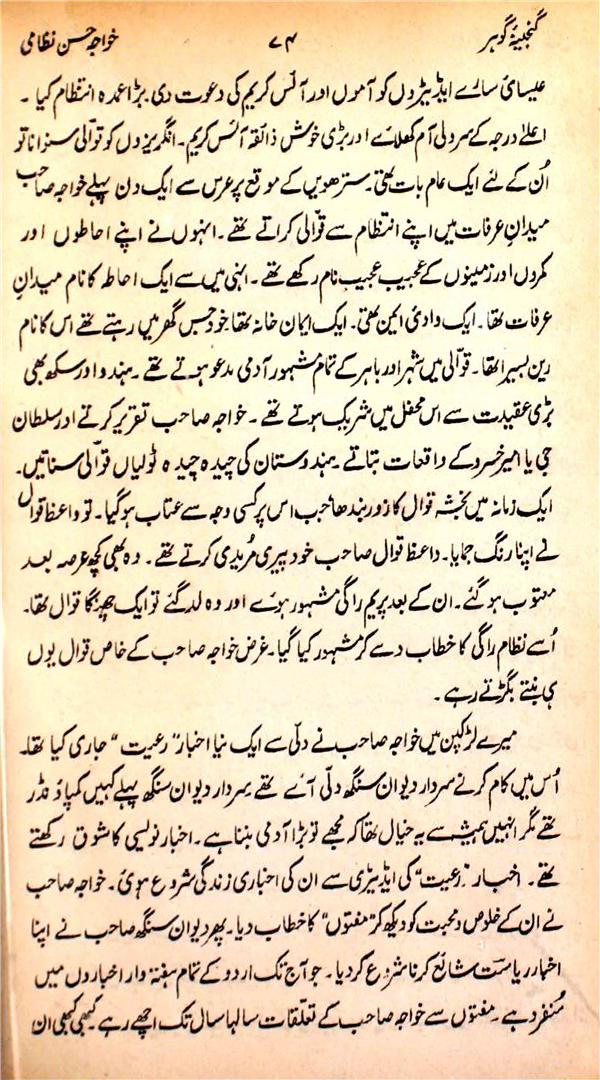 گنجینۂ گوہر ۷۴ خواجہ حسن نظامی
عیسائی سارے ایڈیٹروں کو آموں اور آئس کریم کی دعوت دی۔ بڑا عمدہ انتظام کیا۔
اعلےٰ درجہ کے سرولی آم کھلائے اور بڑی خوش ذائقہ آئس کریم۔ انگریزوں کو قوّالی سنوانا تو
اُن کے لئے ایک عام بات تھی۔ سترھویں کے موقع پر عرس سے ایک دن پہلے خواجہ صاحب
میدانِ عرفات میں اپنے انتظام سے قوّالی کراتے تھے۔ انہوں نے اپنے احاطوں اور
کمروں اور زمینوں کے عجیب عجیب نام رکھے تھے۔ انہی میں سے ایک احاطہ کا نام میدانِ
عرفات تھا۔ ایک وادئ ایمن تھی۔ ایک ایمان خانہ تھا خود جس گھر میں رہتے تھے اس کا نام
رین بسیرا تھا۔ قوّالی میں شہر اور باہر کے تمام مشہور آدمی مدعو ہوتے تھے۔ ہندو اور سکھ بھی
بڑی عقیدت سے اس محفل میں شریک ہوتے تھے۔ خواجہ صاحب تقریر کرتے اور سلطان
جی یا امیر خسرو کے واقعات بتاتے۔ ہندوستان کی چیدہ چیدہ ٹولیاں قوالی سناتیں۔
ایک زمانہ میں بخشہ قوال کا زور بندھا جب اس پر کسی وجہ سے عتاب ہو گیا۔ تو واعظ قوال
نے اپنا رنگ جمایا۔ واعظ قوال صاحب خود پیری مُریدی کرتے تھے۔ وہ بھی کچھ عرصہ بعد
معتوب ہو گئے۔ ان کے بعد پریم راگی مشہور ہوئے اور وہ لد گئے تو ایک جھنگا قوال تھا۔
اُسے نظام راگی کا خطاب دے کر مشہور کیا گیا۔ غرض خواجہ صاحب کے خاص قوال یوں
ہی بنتے بگڑتے رہے۔
میرے لڑکپن میں خواجہ صاحب نے دلّی سے ایک نیا اخبار "رعیت" جاری کیا تھا۔
اُس میں کام کرنے سردار دیوان سنگھ دلّی آئے تھے۔ سردار دیوان سنگھ پہلے کہیں کمپاؤنڈر
تھے مگر انہیں ہمیشہ سے یہ خیال تھا کہ مجھے تو بڑا آدمی بننا ہے۔ اخبار نویسی کا شوق رکھتے
تھے۔ اخبار "رعیت" کی ایڈیٹری سے ان کی اخباری زندگی شروع ہوئی۔ خواجہ صاحب
نے ان کے خلوص و محبت کو دیکھ کر "مفتوں" کا خطاب دیا۔ پھر دیوان سنگھ صاحب نے اپنا
اخبار ریاست شائع کرنا شروع کر دیا۔ جو آج تک اردو کے تمام ہفتہ وار اخباروں میں
مُنفرد ہے۔ مفتوں سے خواجہ صاحب کے تعلّقات سالہا سال تک اچھے رہے۔ کبھی کبھی ان